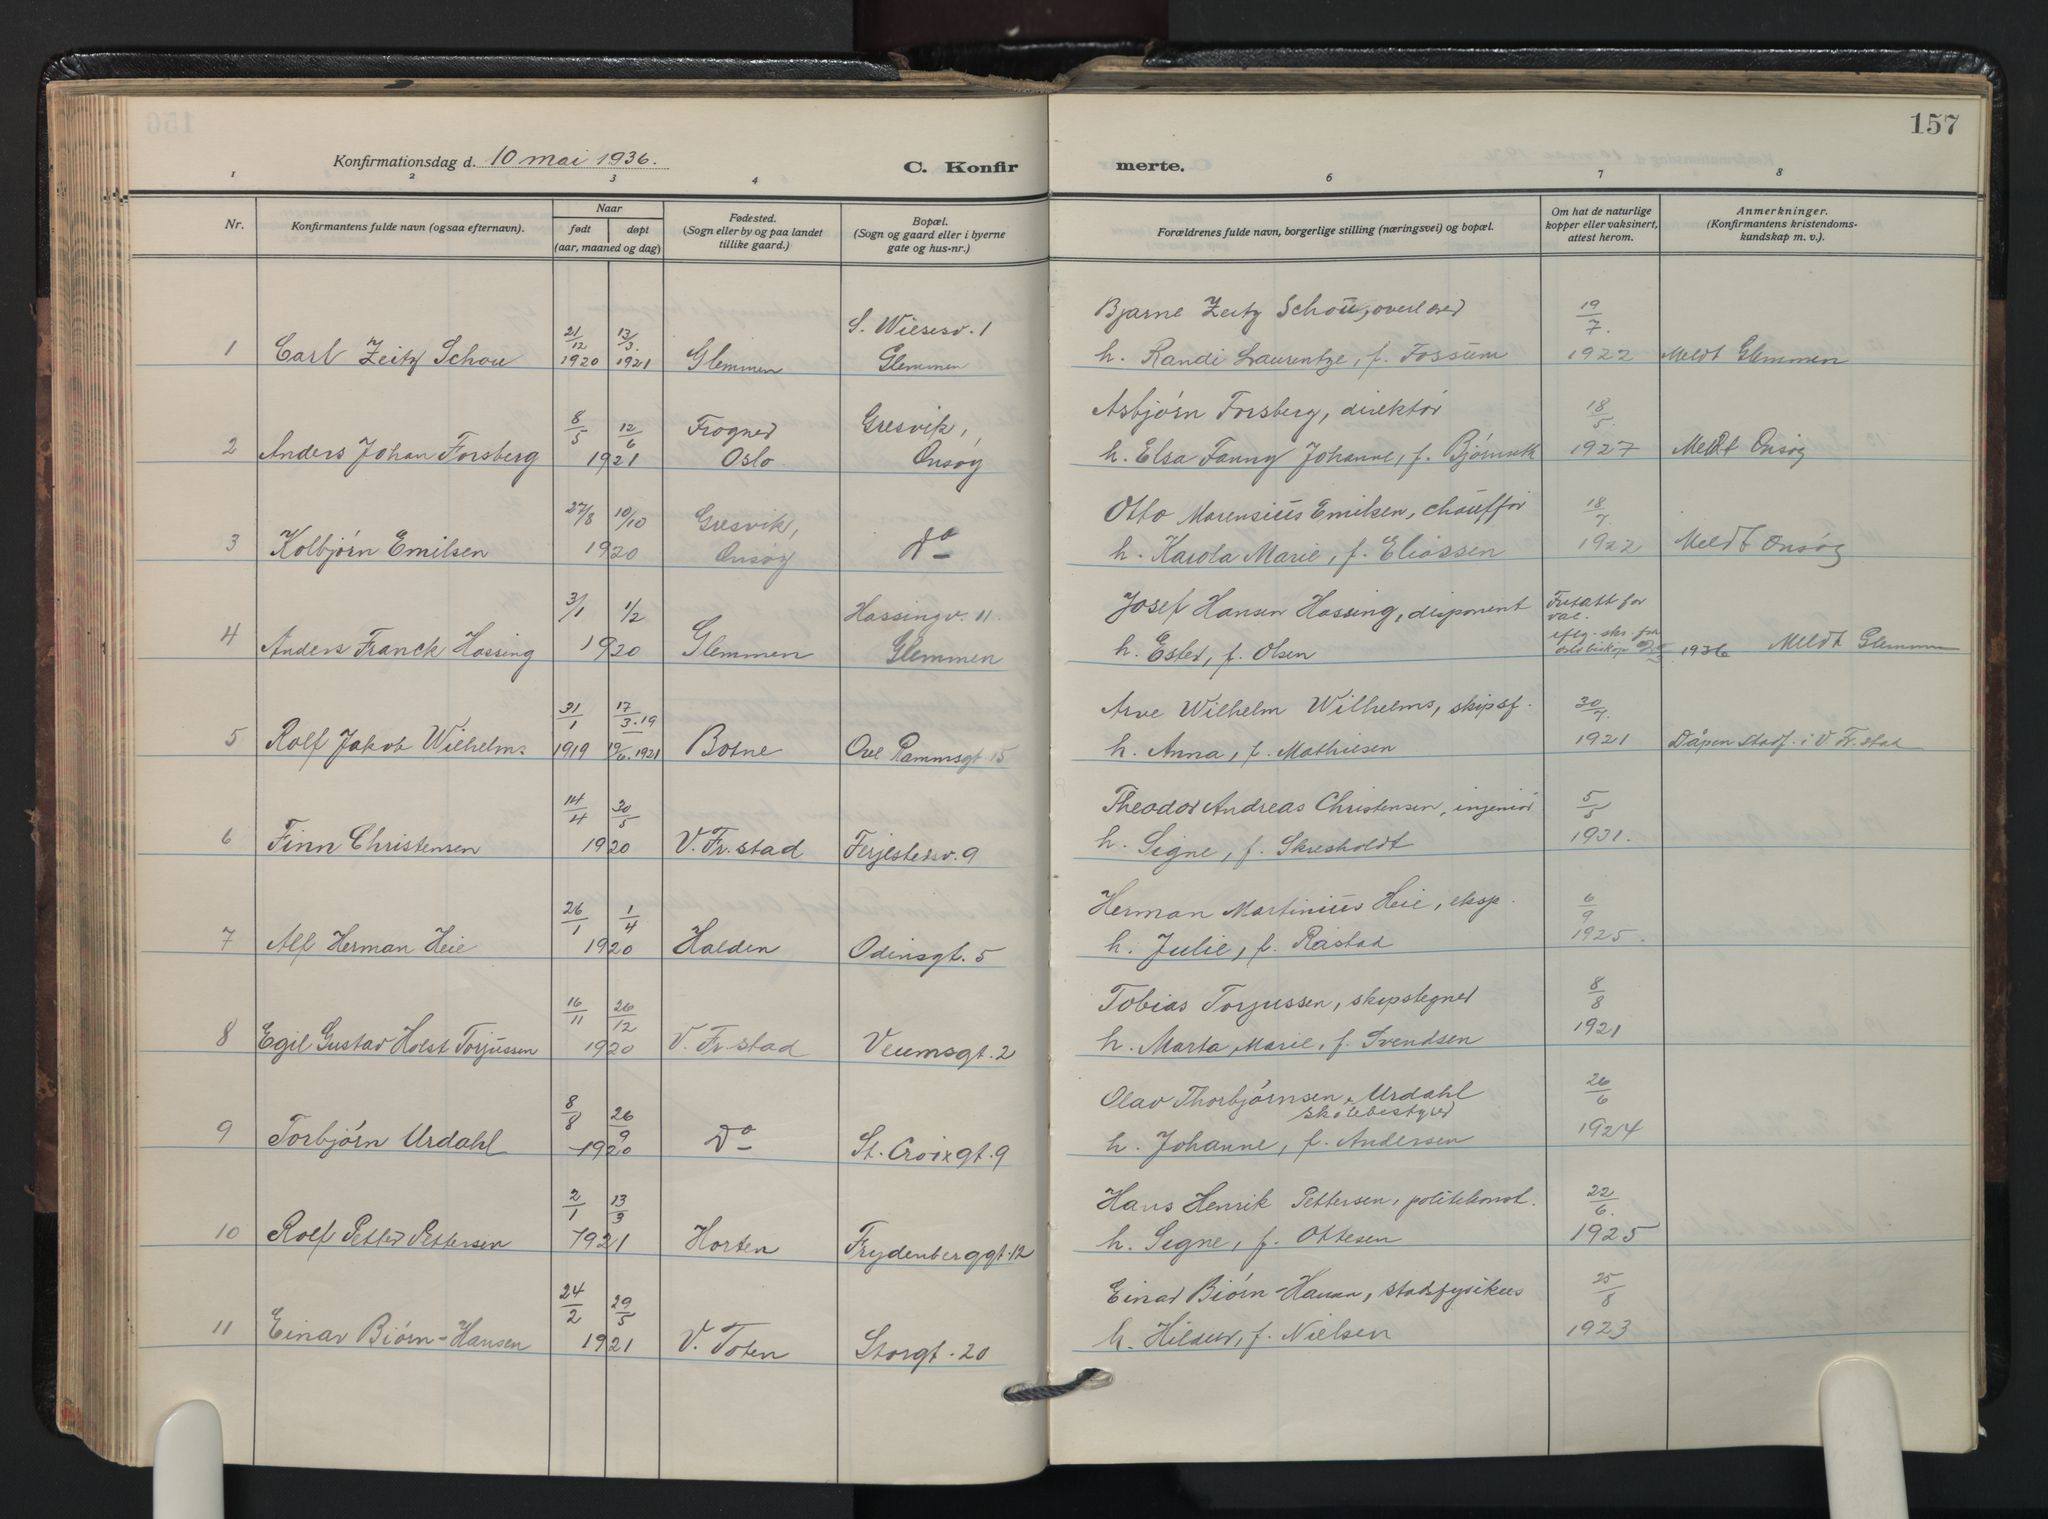 157
Konfirmationsdag d. 10 mai 1936.
C. Konfirmerte.
1 2 3 4 6 7 8
Nr.
Konfirmantens fulde navn (ogsaa efternavn).
Naar
født døpt
(aar, maaned og dag)
Fødested.
(Sogn eller by og paa landet
tillike gaard.)
Bopæl.
(Sogn og gaard eller i byerne
gate og hus-nr.)
Forældrenes fulde navn, borgerlige stilling (næringsvei) og bopæl.
Om hat de naturlige
kopper eller vaksinert,
attest herom.
Anmerkninger.
(Konfirmantens kristendoms-
kundskap m. v.).
21/12 13/3. S. Wiesesv. 1 Bjarne Zeitz Schou, overlærer 19/7.
1 Carl Zeitz Schou 1920 1921 Glemmen Glemmen h. Randi Laurentze, f. Fossum 1922 Meldt Glemmen
8/5 12/6 Frogner Gresvik, Asbjørn Forsberg, direktør 18/5.
2 Anders Johan Forsberg 1921 Oslo Onsøy h. Elsa Fanny Johanne, f. Bjørnvik 1927 Meldt Onsøy
27/8 10/10 Gresvik, Otto Marensius Emilsen, chauffør 18/7.
3 Kolbjørn Emilsen 1920 Onsøy Do h. Karola Marie, f. Eliassen 1922 Meldt Onsøy
3/1 1/2 Hassingv. 11. Josef Hansen Hassing, disponent Fritatt for
vac.
4 Anders Franck Hassing 1920 Glemmen Glemmen h. Ester, f. Olsen eftr. skr. fra
Oslo biskop 1936 Meldt Glemmen
31/1 17/3.19 Arve Wilhelm Wilhelms, skipsf. 30/7.
5 Rolf Jakob Wilhelms. 1919 19/6.1921 Botne Ove Rammsgt. 15 h. Anna, f. Mathiesen 1921 Dåpen stadf. i V. Fr.stad
14/4 30/5 Theodor Andreas Christensen, ingeniør 5/5
6 Finn Christensen 1920 V. Fr.stad Ferjestedsv. 9 h. Signe, f. Skresholdt 1931.
26/1 1/4 Herman Martinius Heie, eksp. 6/9
7 Alf Herman Heie 1920 Halden Odinsgt. 5 h. Julie, f. Råstad 1925.
16/11 26/12 Tobias Torjussen, skipstegner 8/8
8 Egil Gustav Holst Torjussen 1920 V. Fr.stad Veumsgt. 2 h. Marta Marie, f. Svendsen 1921
8/8 26/9 Olav Thorbjørnsen Urdahl 26/6
skolebestyrer
9 Torbjørn Urdahl 1920 Do St. Croixgt. 9 h. Johanne, f. Andersen 1924
2/1 13/3 Hans Henrik Pettersen, politikonst. 22/6.
10 Rolf Petter Pettersen 1921 Horten Frydenberggt. 12 h. Signe, f. Ottesen 1925
24/2 29/5 Einar Biørn-Hansen, stadsfysikus 25/8
11 Einar Biørn-Hansen 1921 V. Toten Storgt. 20 h. Hildur, f. Nielsen 1923